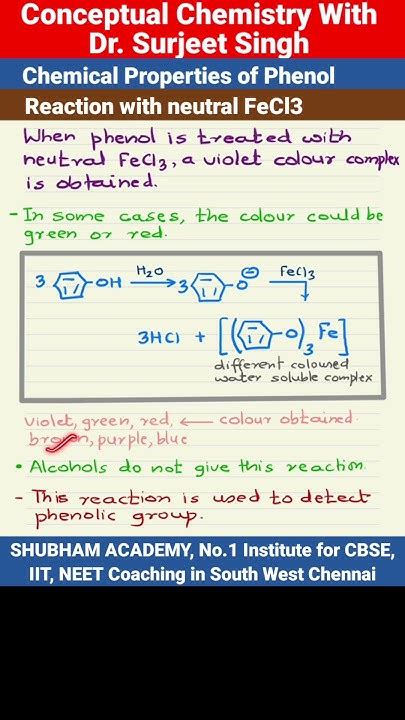 Conceptual Chemistry With
Dr. Surjeet Singh
Chemical Properties of Phenol
Reaction with neutral FeCl3
When phenol is treated with
neutral FeCl3, a violet colour complex
is obtained.
- In some cases, the colour could be
green or red.
3 -OH H2O 3 -O ⊖ FeCl3
3HCl + [( -O)3 Fe]
different coloured
water soluble complex
violet, green, red, ← colour obtained.
brown, purple, blue
• Alcohols do not give this reaction.
- This reaction is used to detect
phenolic group.
SHUBHAM ACADEMY, No.1 Institute for CBSE,
IIT, NEET Coaching in South West Chennai